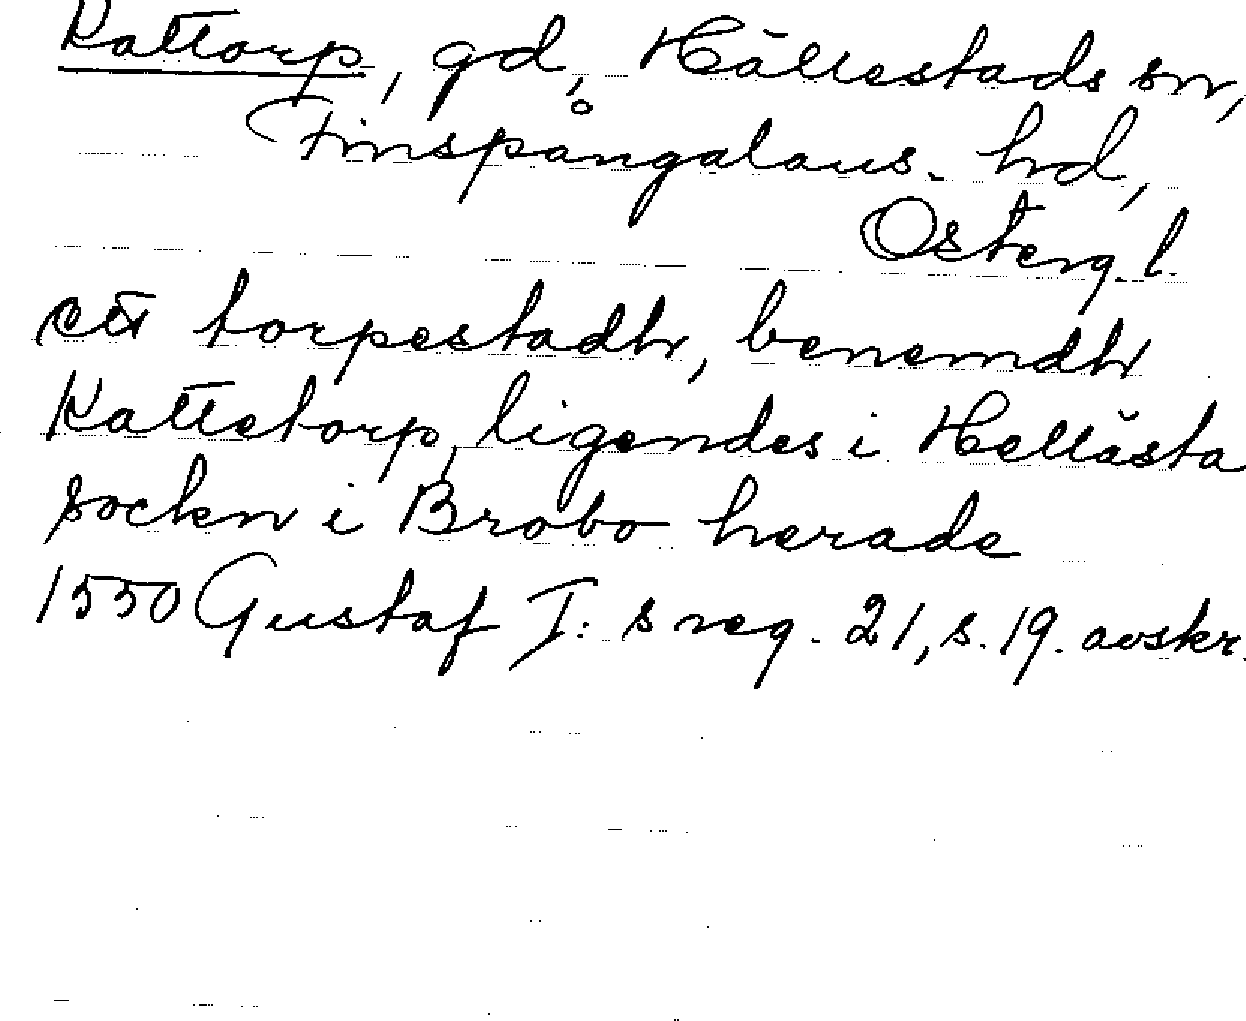 Kattorp, gd, Hällestads sn,
Finspångaläns hd,
Österg. l.
ett torpestadh, benemdh
Kattetorp, ligendes i Hellästa
sockn i Brobo herade
1550 Gustaf I:s reg. 21, s. 19. avskr.